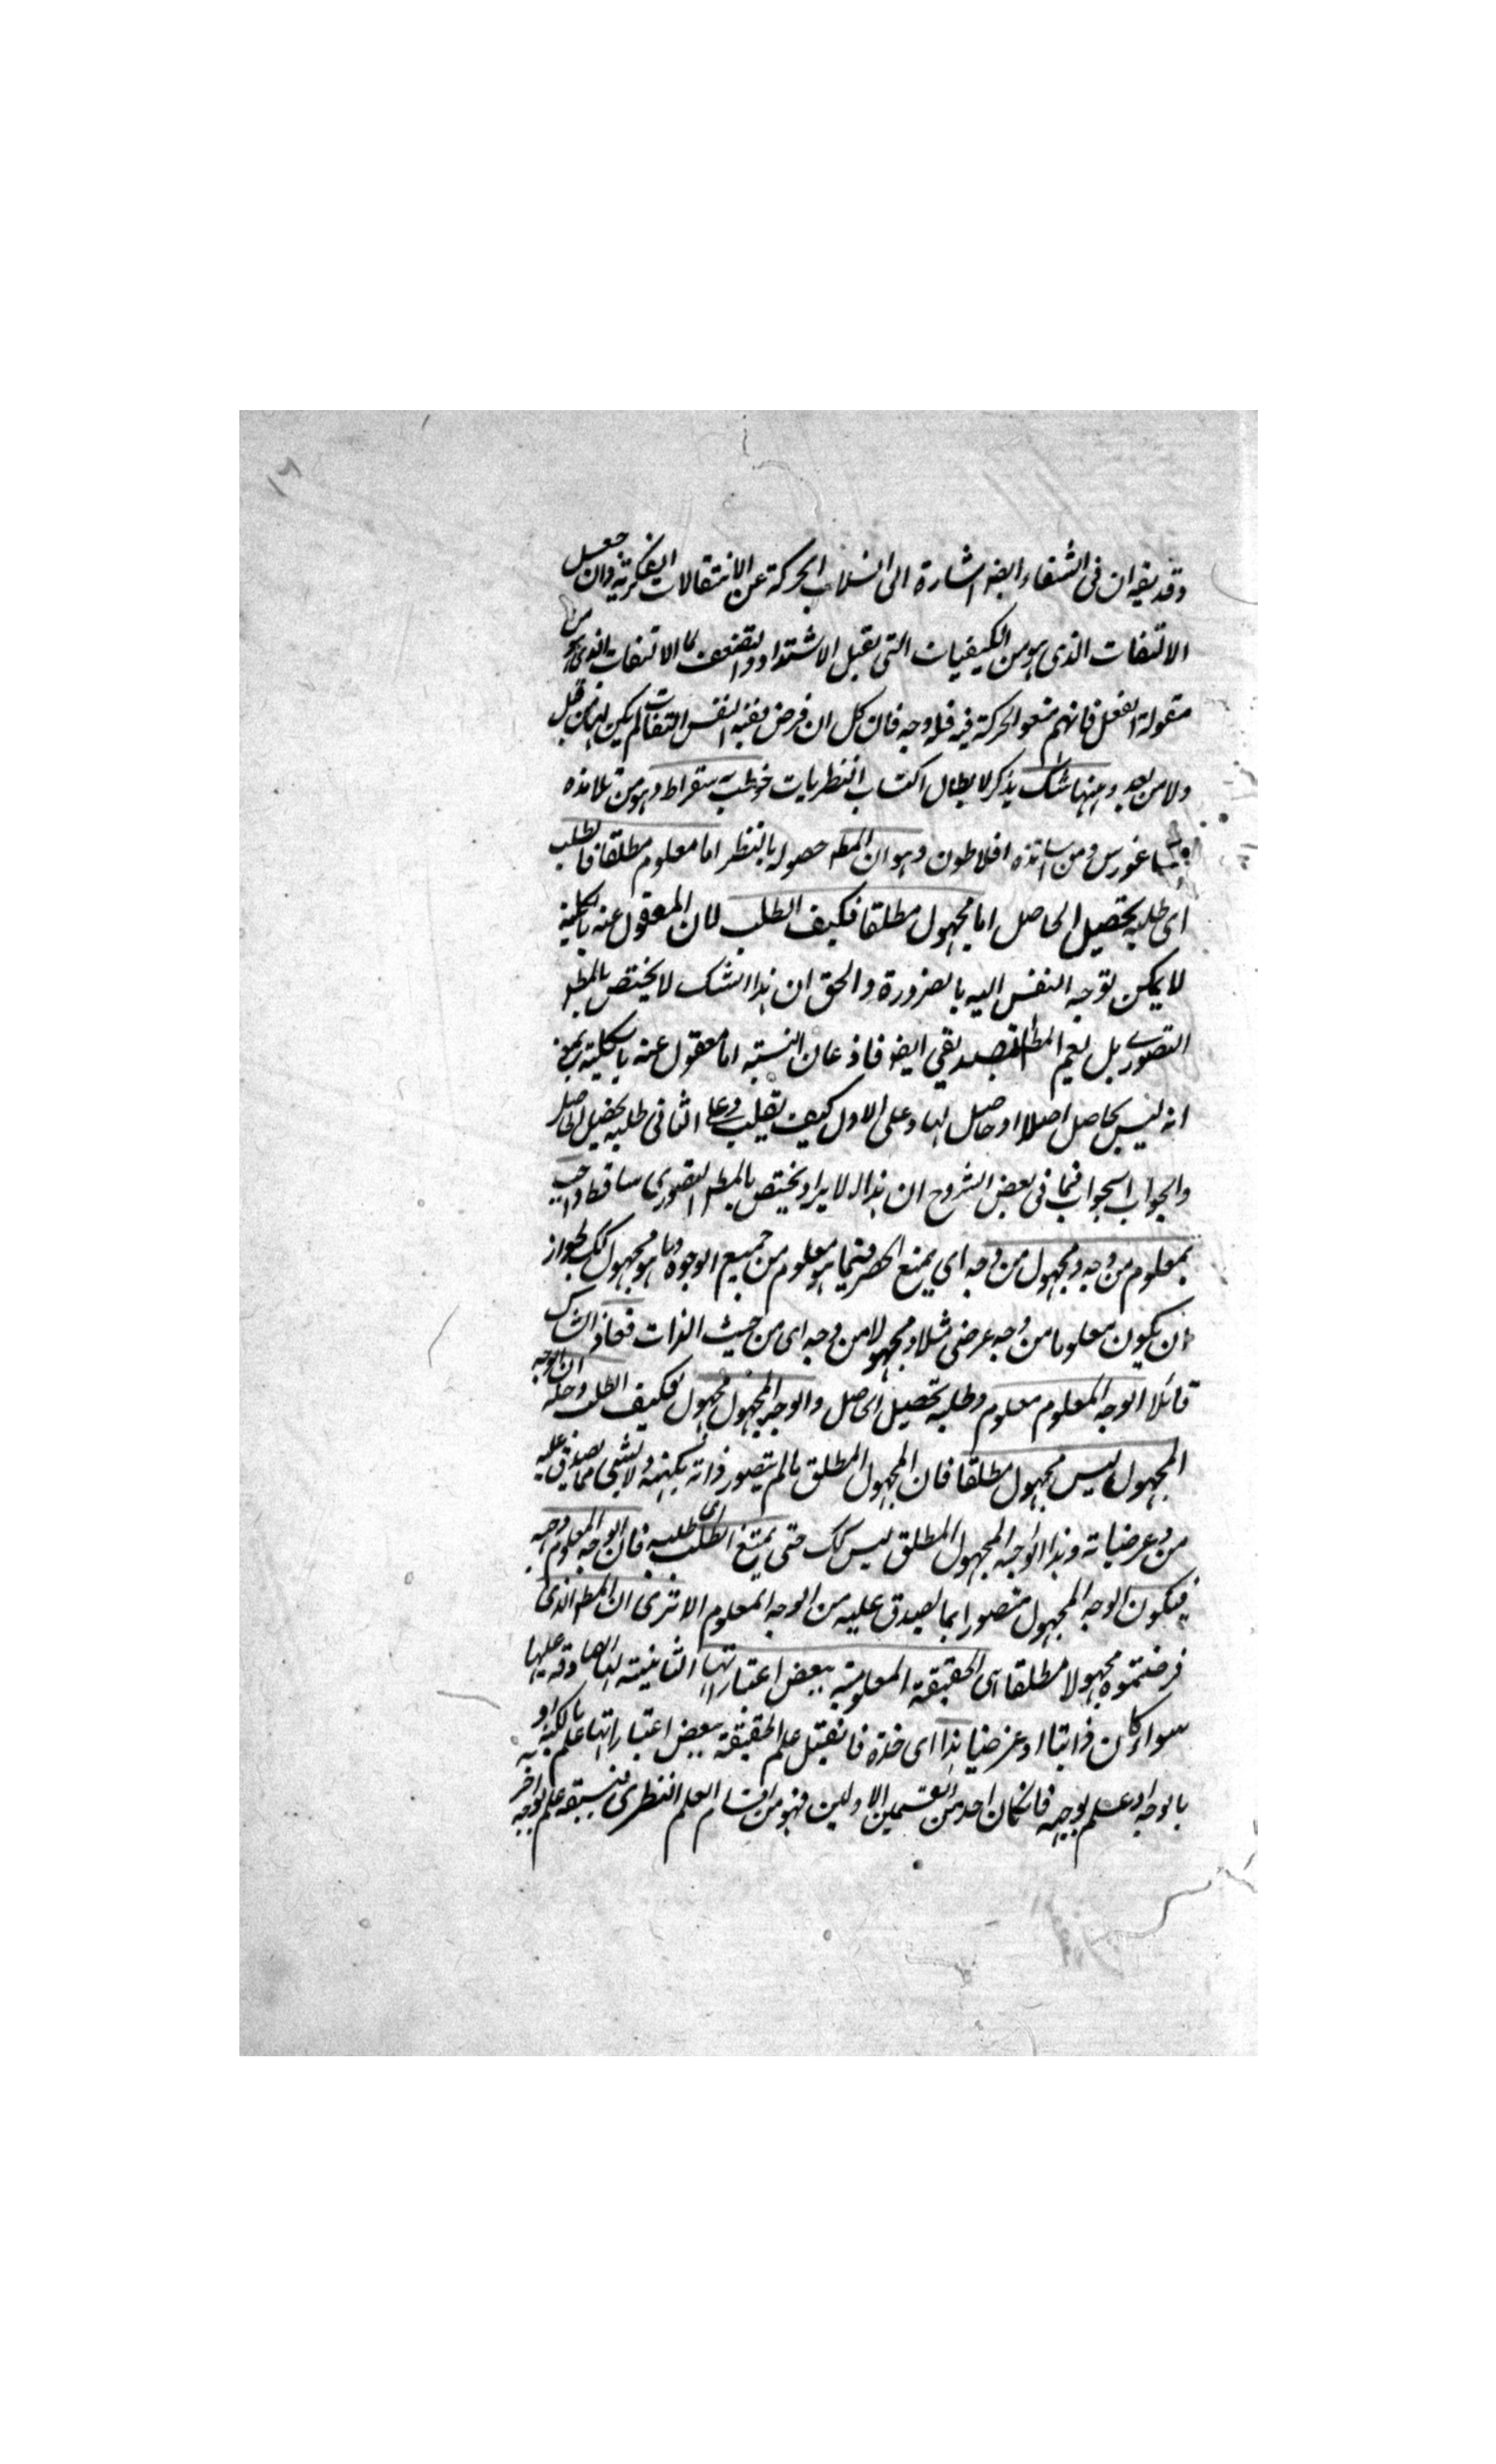 وقد يقه ان فى الشفاء ايضه اشارة الى انسلاب الحركة عن الانتقالات الفكرية وان جعل
الالتفات الذى هو من الكيفيات التى تقبل الاشتداد والتضعف لا الالتفات الذى هو من
مقولة الفعل فانهم منعوا الحركة فيه فله وجه فان كل ان فرض ففيه النفس التفات لم يكن لها من قبل
ولا من بعد ومنها شك يذكر لابطال اكتساب النظريات خوطب به سقراط وهو من تلامذه
غورس ومن اساتذه افلاطون وهو ان المطه حصوله بالنظر اما معلوم مطلقا فالطلب
أى طلبه تحصيل الحاصل اما مجهول مطلقا فكيف الطلب لان المعقول عنه بالكلية
لا يمكن توجه النفس اليه بالضرورة والحق ان هذا الشك لا يختص بالمطه
التصورى بل يعم المطه التصديقي ايضه فاذعان النسبته اما معقول عنه بالكليته بمعنى
انه ليس بحاصل اصلا او حاصل لها وعلى الاول كيف يطلب وعلى الثانى طلبه تحصيل الحاصل
والجواب الجواب فما فى بعض الشروح ان هذا الايراد يختص بالمطه التصورى ساقط واجيب
بمعلوم من وجه ومجهول من وجه اى يمنع الحصر فيما هو معلوم من جميع الوجوه وما هو مجهول كك لجواز
ان يكون معلوما من وجه عرضى مثلا ومجهولا من وجه اى من حيث الذات فعاد الشاك
قائلا الوجه المعلوم معلوم وطلبه تحصيل الحاصل والوجه المجهول مجهول فكيف الطلب وحله ان الوجه
المجهول ليس مجهول مطلقا فان المجهول المطلق ما لم يتصور ذاته بكنهه ولا بشى مما يصدق عليه
من عرضياته وهذا الوجه المجهول المطلق ليس كك حتى يمتنع الطلب اى طلبه فان الوجه المعلوم وجهه
فيكون الوجه المجهول متصورا بما يصدق عليه من الوجه المعلوم الا ترى ان المطه الذى
فرضتموه مجهولا مطلقا اى الحقيقة المعلومة ببعض اعتباراتها الثانيته لها الصادقه عليها
سواء كان ذاتيا او عرضيا هذا اى خذه فانقتل علم الحقيقة ببعض اعتباراتها علم بالكنه او
بالوجه او علم بوجهه فان كان احد من القسمين الاولين فهو من اقسام العلم النظرى فيسبقه علم بوجه اخر